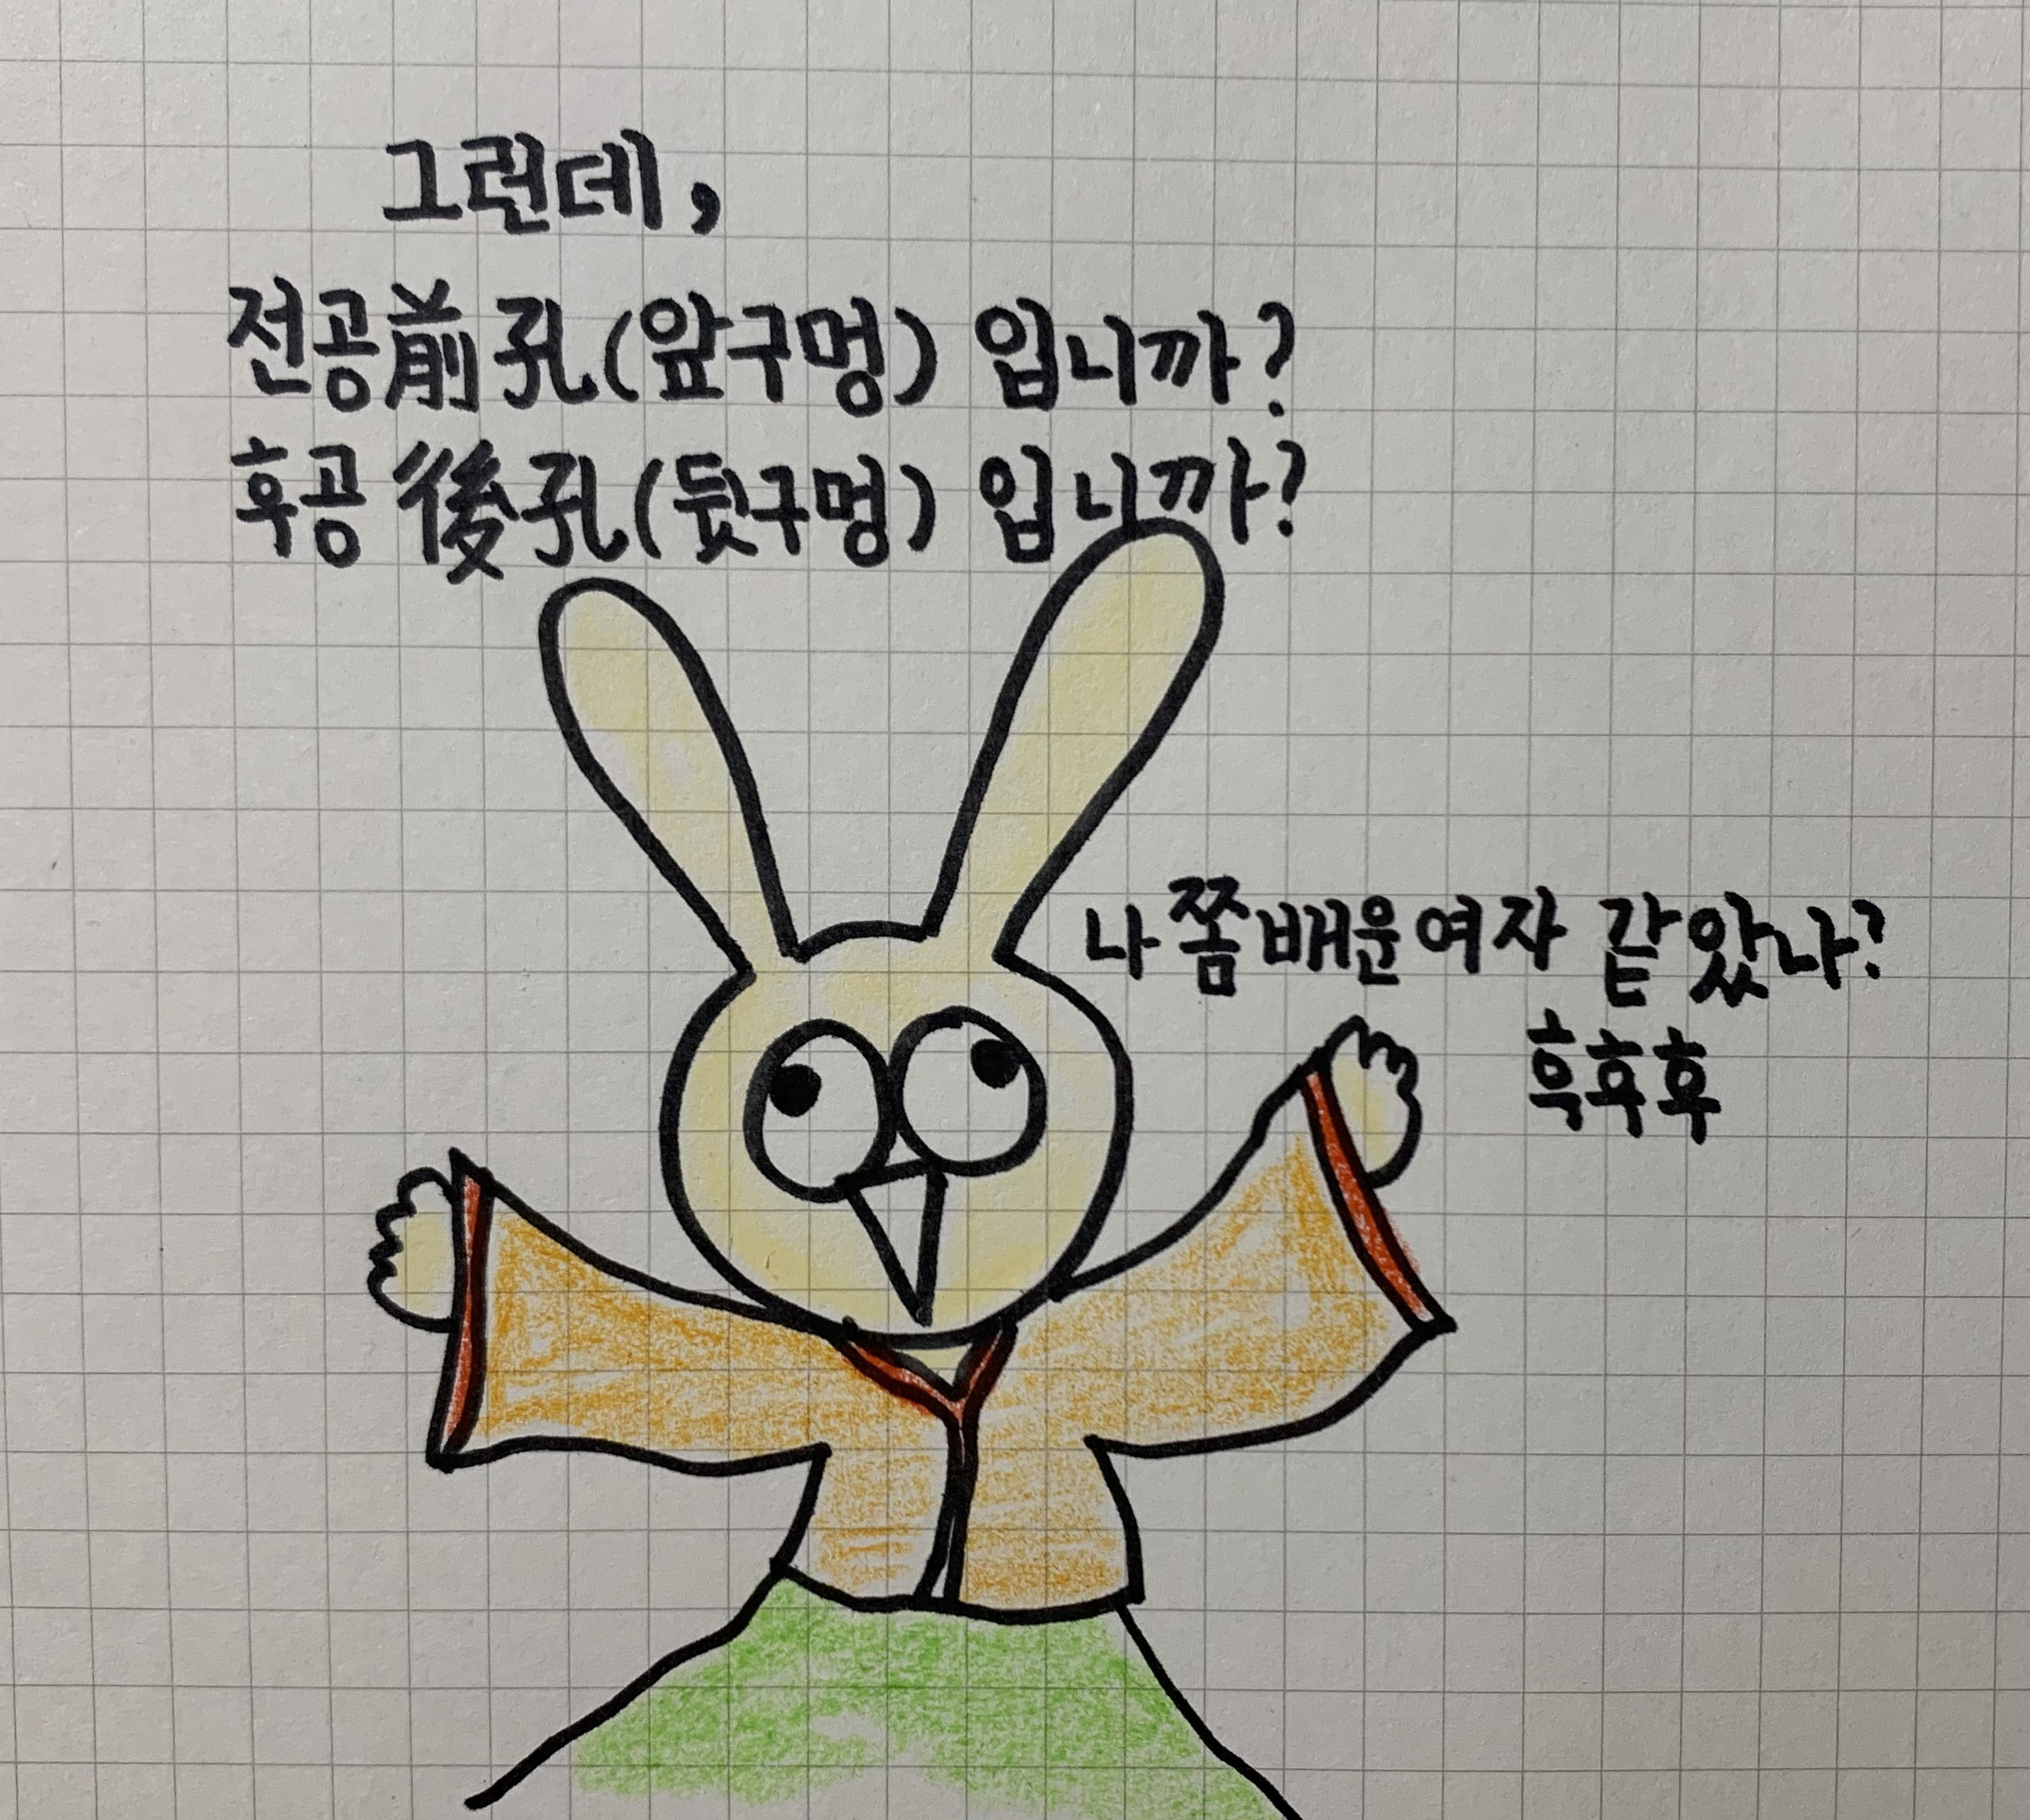 그런데,
전공前孔(앞구멍) 입니까?
후공 後孔(뒷구멍) 입니까?
나 쫌 배운 여자 같았나?
훅후후